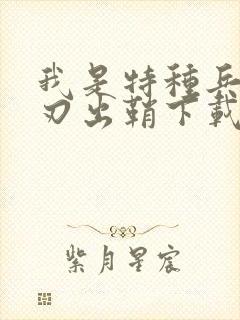 我是特種兵
刃出鞘下載
紫月星宸